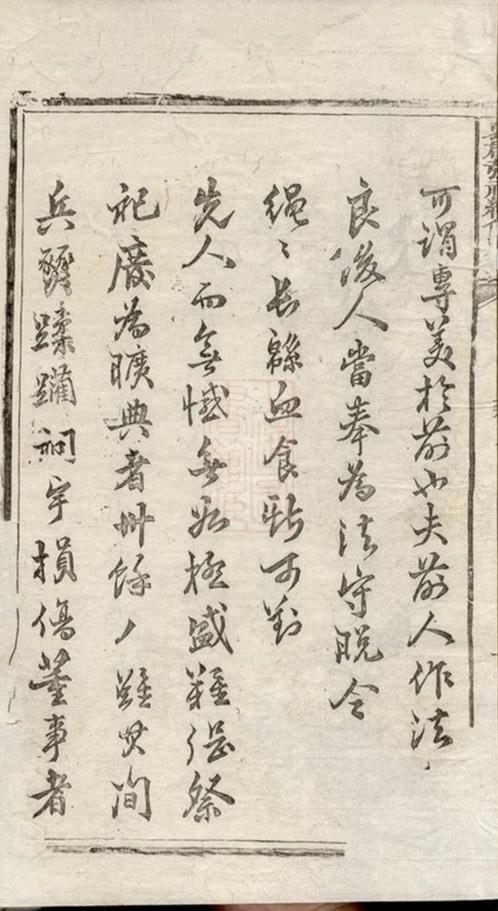 可謂專美於前也夫前人作法
良後人當奉為法守脱令
繩〻長緜血食斯可對
先人而無憾無如極盛難得祭
祀廢為曠典者卅餘年難其間
兵躪蹂躪祠宇損傷董事者